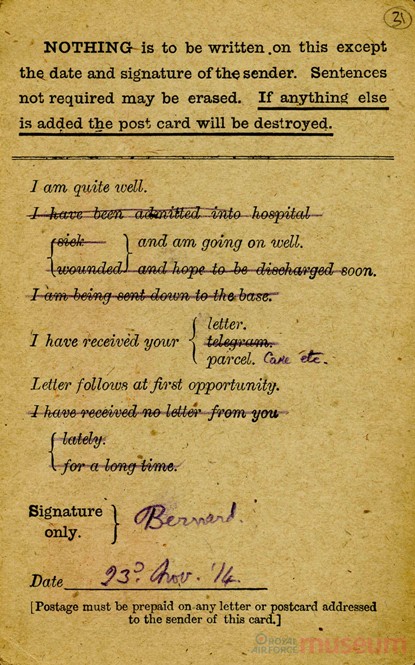 31
NOTHING is to be written on this except
the date and signature of the sender. Sentences
not required may be erased. If anything else
is added the post card will be destroyed.
I am quite well.
I have been admitted into hospital
sick } and am going on well.
wounded } and hope to be discharged soon.
I am being sent down to the base.
letter.
I have received your { telegram.
parcel. Cake etc.
Letter follows at first opportunity.
I have received no letter from you
lately.
for a long time.
Signature } Bernard.
only.
Date 23rd Nov. '14
[Postage must be prepaid on any letter or postcard addressed
to the sender of this card.]
© ROYAL
AIR FORCE museum